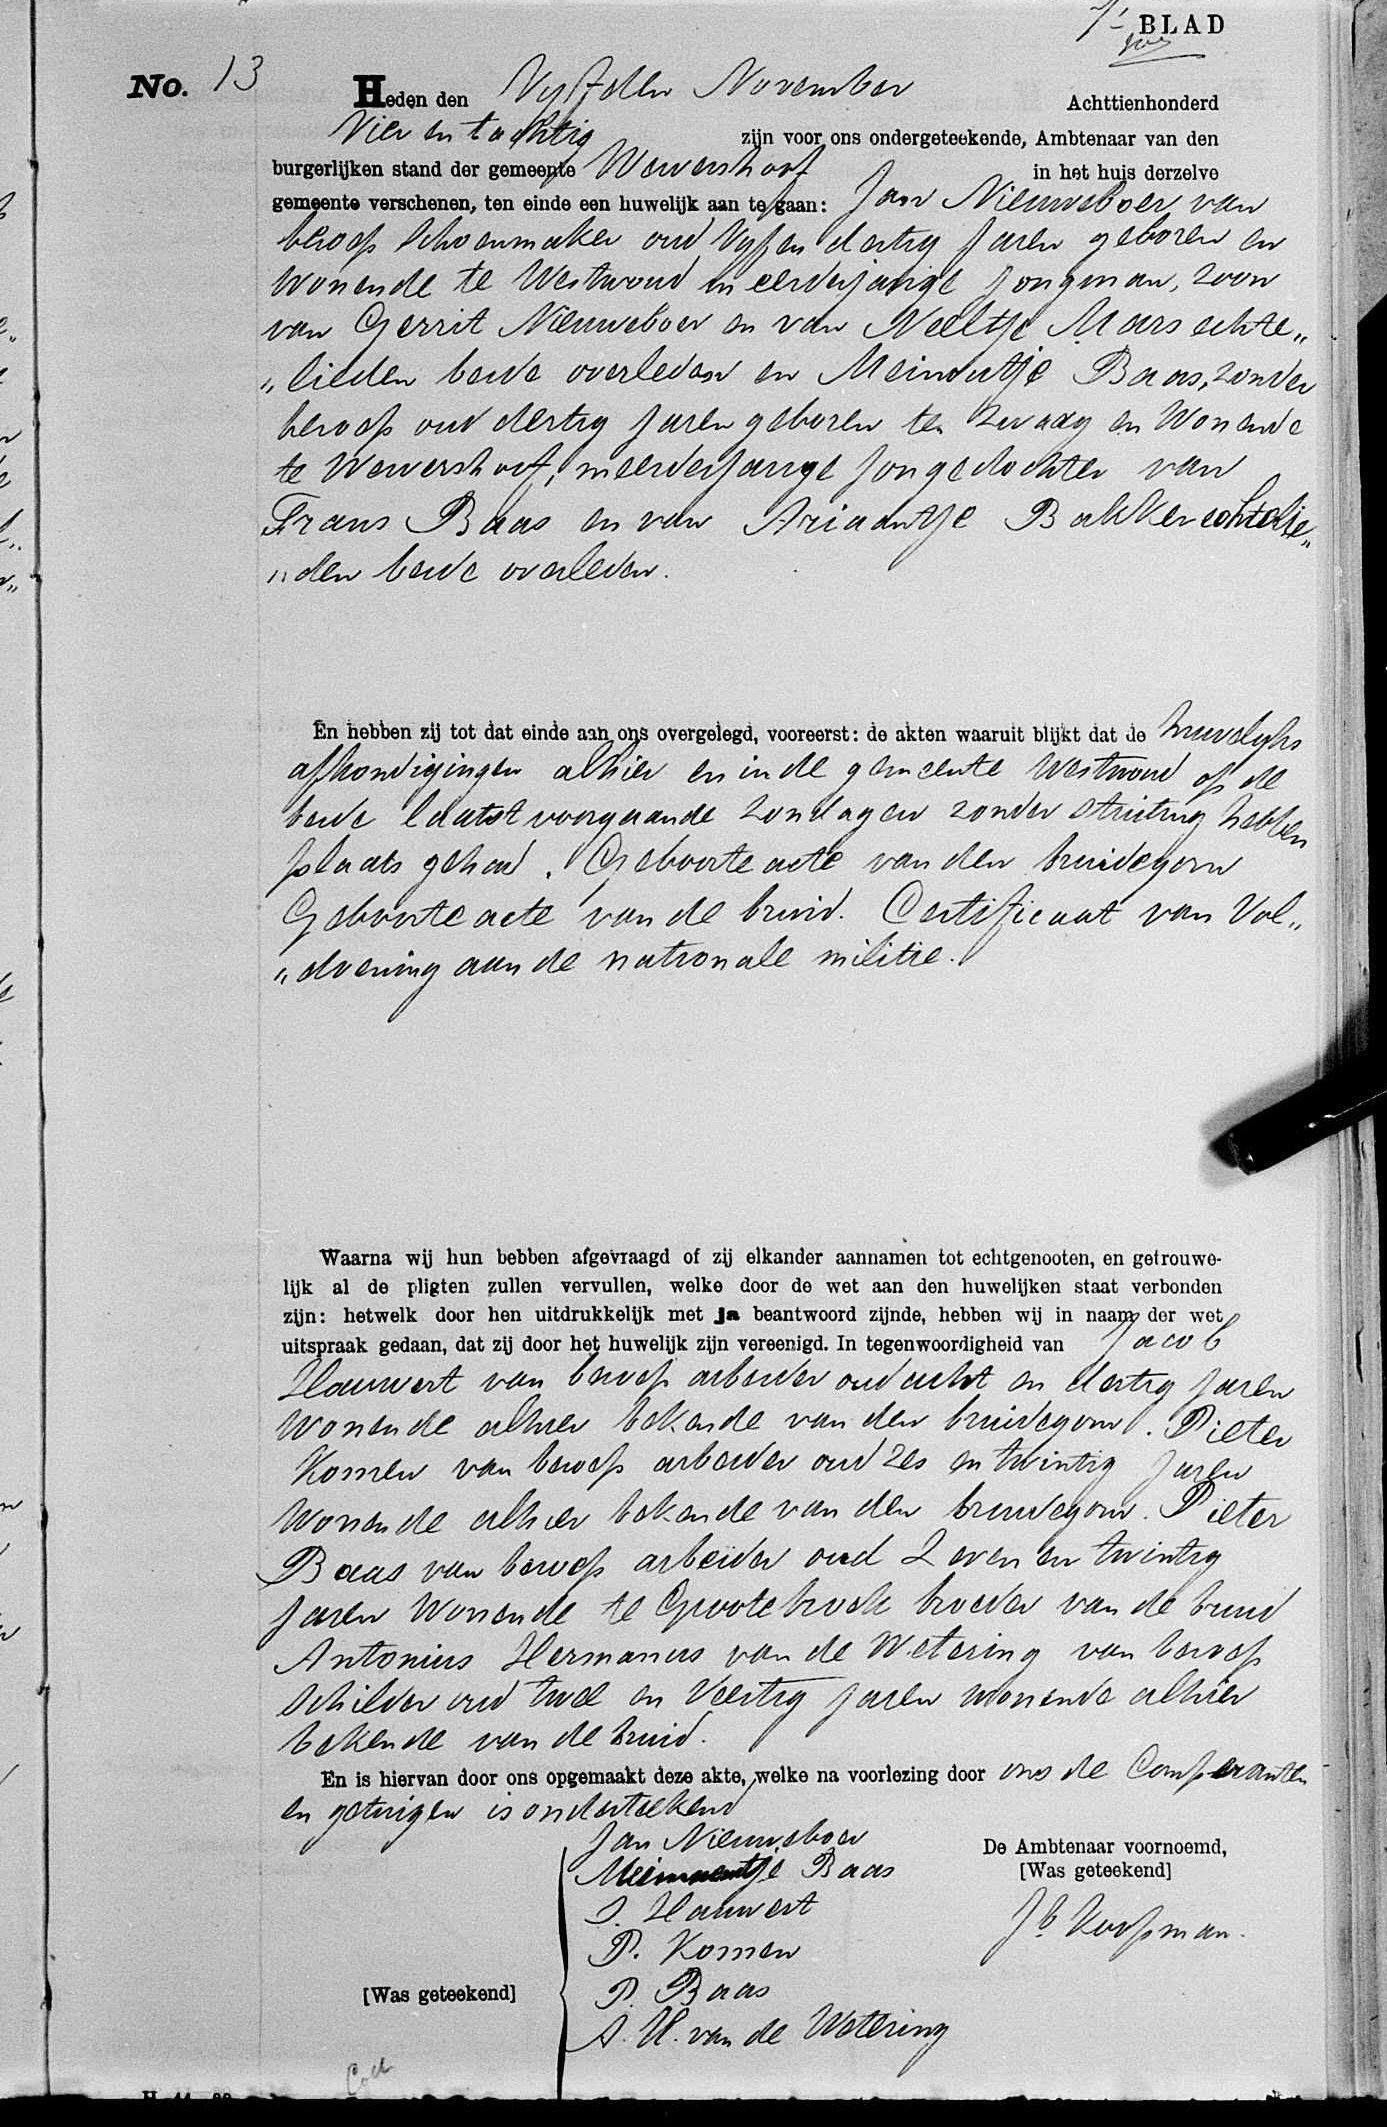 7e BLAD
No. 13
Heden den Vyfden November Achttienhonderd
Vier en tachtig zijn voor ons ondergeteekende, Ambtenaar van den
burgerlijken stand der gemeente Wervershoof in het huis derzelve
gemeente verschenen, ten einde een huwelijk aan te gaan: Jan Nieuweboer van
beroep Schoenmaker oud Vyf en dertig Jaren geboren en
Wonende te Westwoud meerderjarige Jongman, zoon
van Gerrit Nieuweboer en van Neeltje Mars echte„
„lieden beide overleden en Meinoutje Baas, zonder
beroep oud dertig Jaren geboren te Zwaag en Wonende
te Wervershoof, meerderjarige Jongedochter van
Frans Baas en van Ariaantje Bakker echtelie„
„den beide overleden.
En hebben zij tot dat einde aan ons overgelegd, vooreerst: de akten waaruit blijkt dat de huwelyks
afkondigingen alhier en in de gemeente Westwoud op de
beide laatst voorgaande Zondagen zonder stuiting hebben
plaats gehad. Geboorte acte van den bruidegom
Geboorte acte van de bruid. Certificaat van Vol„
„doening aan de nationale militie.
Waarna wij hun bebben afgevraagd of zij elkander aannamen tot echtgenooten, en getrouwe-
lijk al de pligten zullen vervullen, welke door de wet aan den huwelijken staat verbonden
zijn: hetwelk door hen uitdrukkelijk met ja beantwoord zijnde, hebben wij in naam der wet
uitspraak gedaan, dat zij door het huwelijk zijn vereenigd. In tegenwoordigheid van Jacob
Hauwert van beroep arbeider oud acht en dertig Jaren
Wonende alhier bekende van den bruidegom. Pieter
Komen van beroep arbeider oud zes en twintig Jaren
Wonende alhier bekende van den bruidegom. Pieter
Baas van beroep arbeider oud Zeven en twintig
Jaren Wonende te Grootebroek broeder van de bruid
Antonius Hermanus van de Wetering van beroep
Schilder oud twee en Veertig Jaren wonende alhier
bekende van de bruid.
En is hiervan door ons opgemaakt deze akte, welke na voorlezing door ons de Comparanten
en getuigen is onderteekend
Jan Nieuweboer
Meinoutje Baas
J. Hauwert
P. Komen
P. Baas
A. H. van de Wetering
[Was geteekend]
De Ambtenaar voornoemd,
[Was geteekend]
Jb Koopman.
Coll